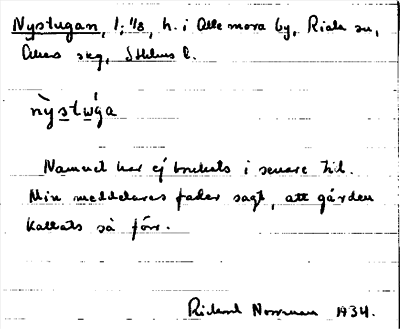 Nystugan, 1; 1/8, h. i Allmora by, Riala sn,
Åkers skg, Sthlms l.
nỳstẃga
Namnet har ej brukats i senare tid.
Min meddelares fader sagt, att gården
kallats så förr.
Rickard Norrman 1934.